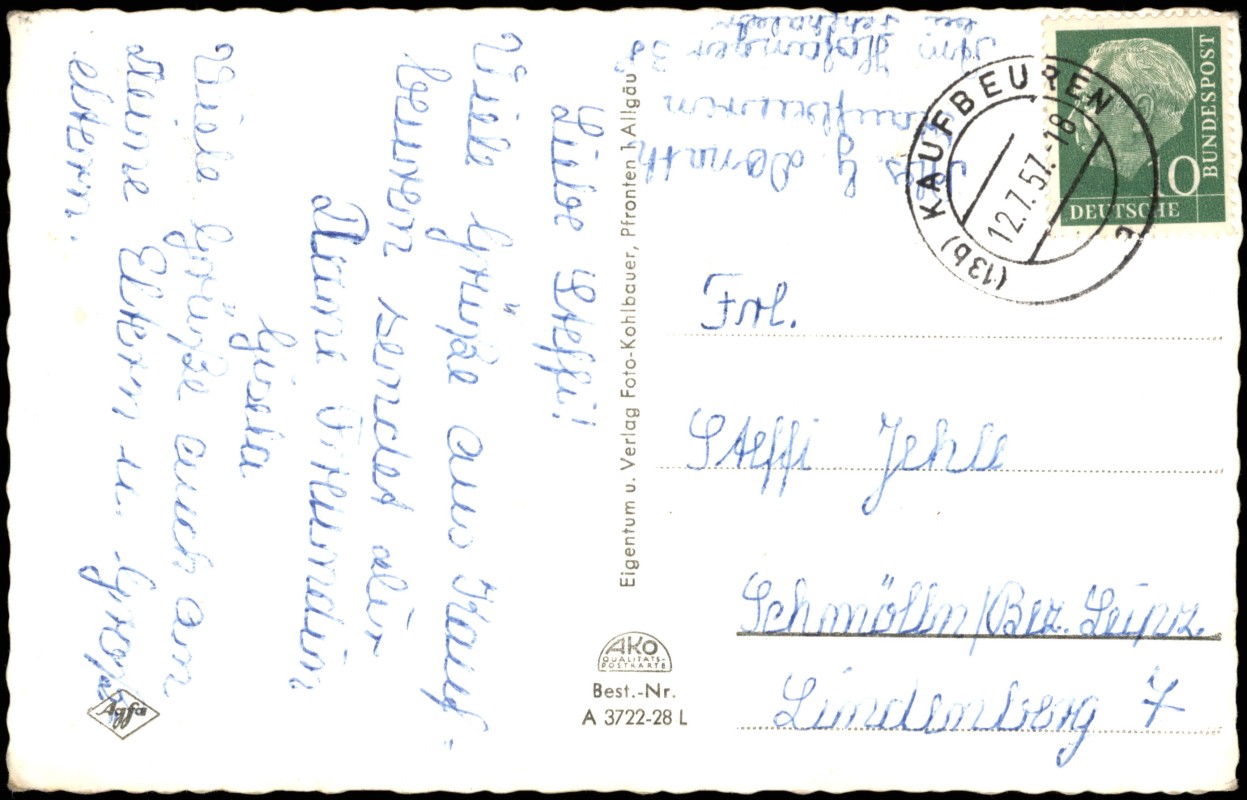 Liebe Steffi!
Viele Grüße aus Kauf-
beuren sendet dir
Deine Freundin
Gisela
Viele Grüße auch an
deine Eltern u. Groß-
eltern.
Agfa
Eigentum u. Verlag Foto-Kohlbauer, Pfronten i. Allgäu
AKO
QUALITÄTS-
POSTKARTE
Best.-Nr.
A 3722-28 L
Abs. G. Donath
Kaufbeuren
Am Hofanger 38
bei
(13b) KAUFBEUREN
12.7.57.-18
DEUTSCHE
BUNDESPOST
10
Frl.
Steffi Jehle
Schmölln/Bez. Leipz.
Lindenberg 7